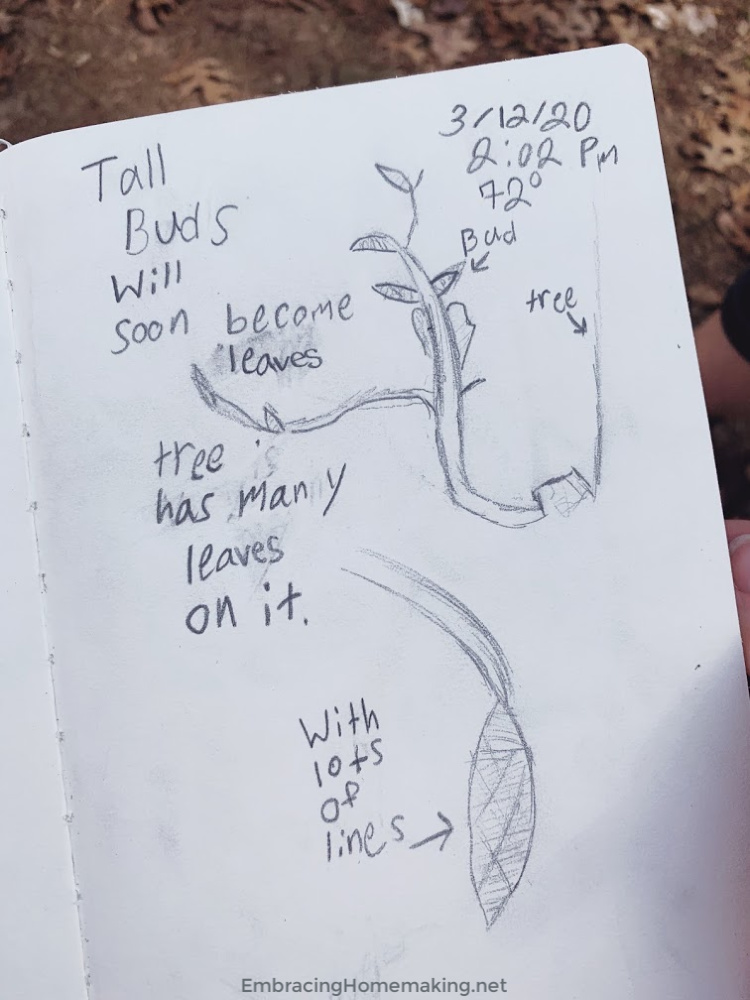 3/12/20
2:02 PM
72°
Tall
Buds
Will
soon become
leaves
Bud
tree
tree is
has many
leaves
on it.
With
lots
of
lines
EmbracingHomemaking.net